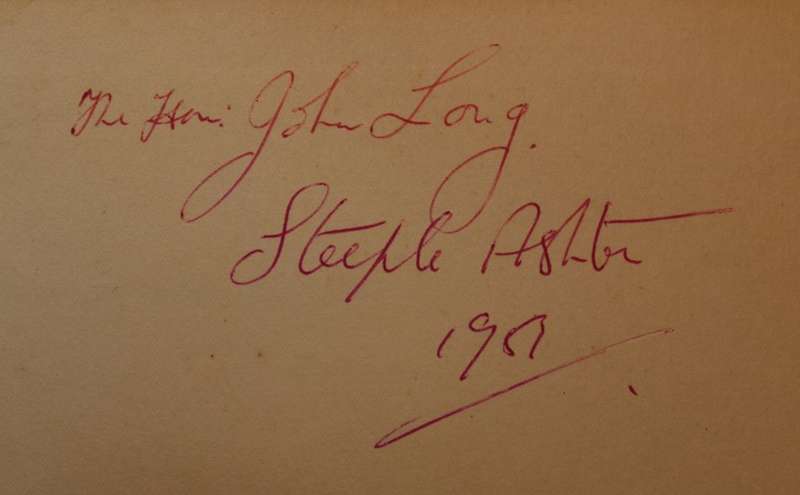 The Hon: John Long.
Steeple Ashton
1951